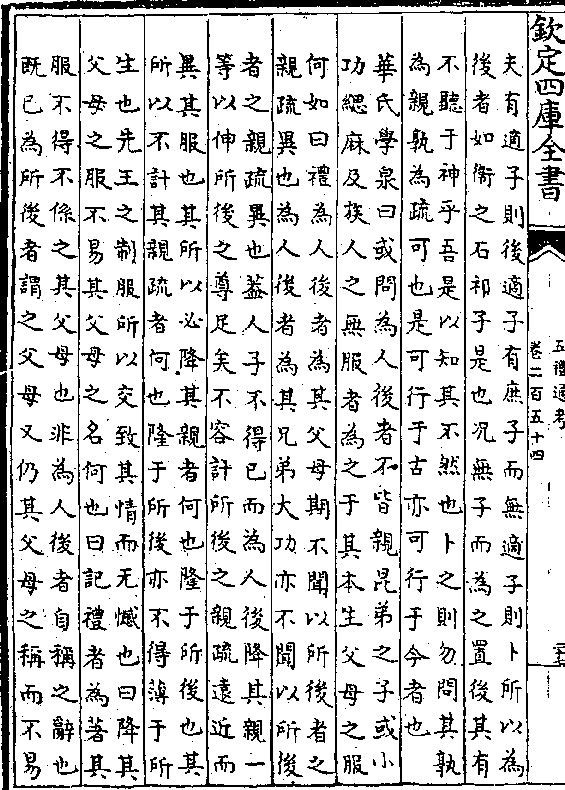 欽定四庫全書
五禮通考
卷二百五十四
夫有適子則後適子有庶子而無適子則卜所以為
後者如衛之石祁子是也况無子而為之置後其有
不聽于神乎吾是以知其不然也卜之則勿問其孰
為親孰為疏可也是可行于古亦可行于今者也
華氏學泉曰或問為人後者不皆親昆弟之子或小
功緦麻及族人之無服者為之于其本生父母之服
何如曰禮為人後者為其父母期不聞以所後者之
親疏異也為人後者為其兄弟大功亦不聞以所後
者之親疏異也葢人子不得已而為人後降其親一
等以伸所後之尊足矣不容計所後之親疏遠近而
異其服也其所以必降其親者何也隆于所後也其
所以不計其親疏者何也隆于所後亦不得薄于所
生也先王之制服所以交致其情而无憾也曰降其
父母之服不易其父母之名何也曰記禮者為著其
服不得不係之其父母也非為人後者自稱之辭也
既已為所後者謂之父母又仍其父母之稱而不易